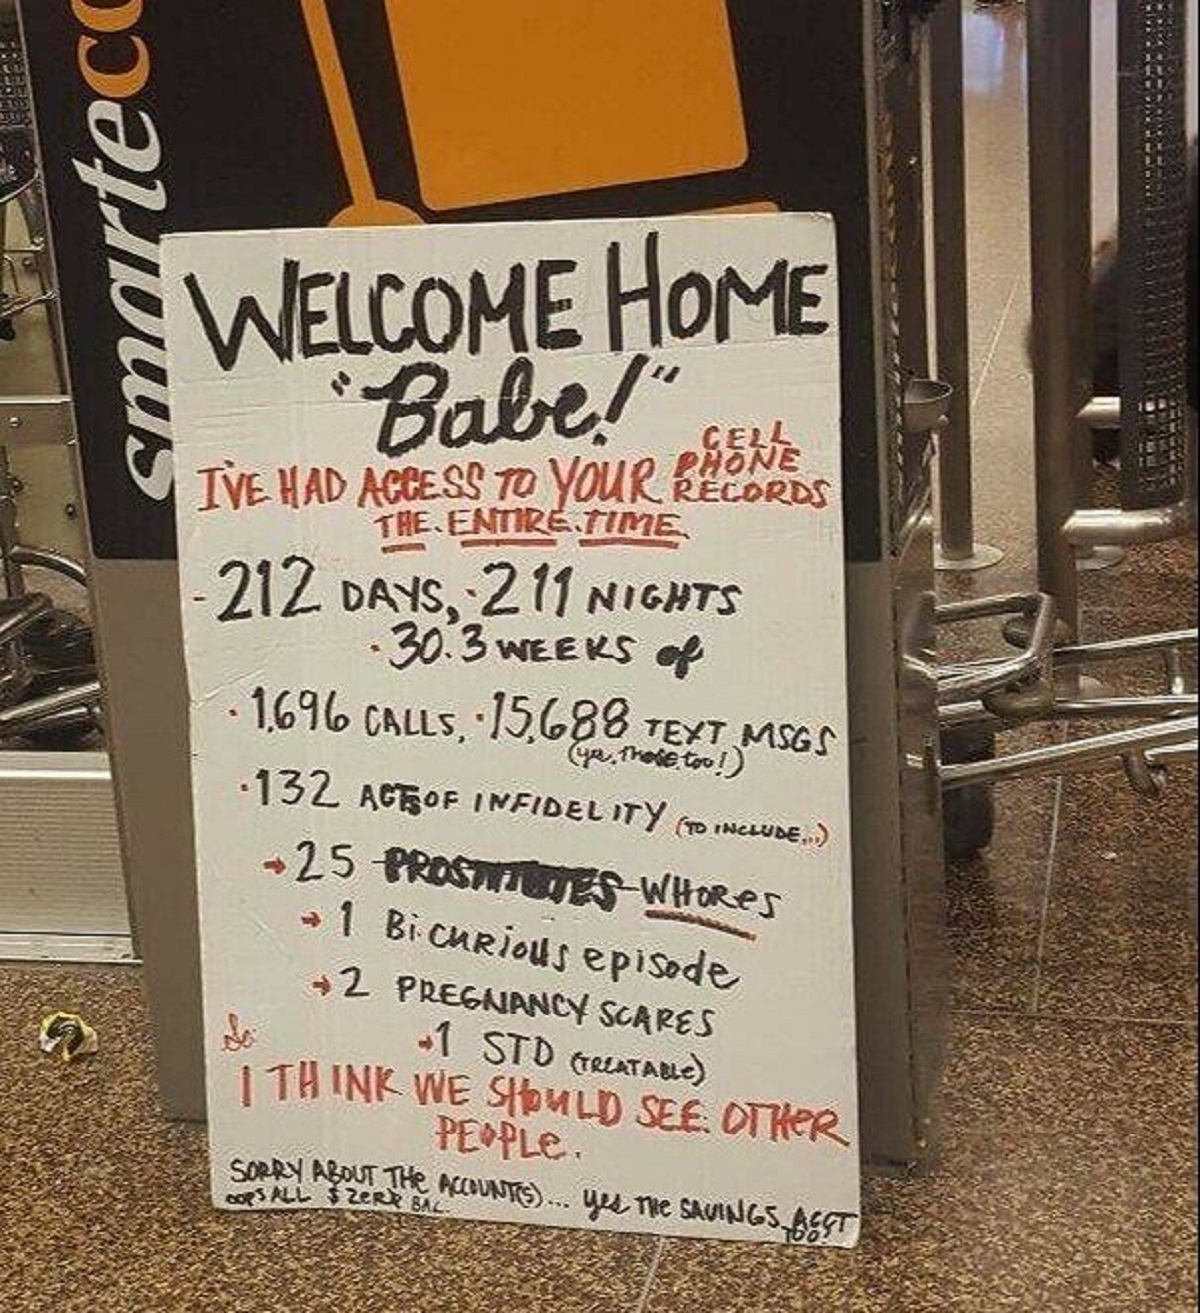 smarteco
WELCOME HOME
"Babe!"
I'VE HAD ACCESS TO YOUR CELL PHONE RECORDS
THE. ENTIRE. TIME.
- 212 DAYS, · 211 NIGHTS
· 30.3 WEEKS of
· 1,696 CALLS, · 15,688 TEXT MSGS
(yes, those too!)
· 132 ACTS OF INFIDELITY (TO INCLUDE...)
→ 25 PROSTITUTES WHORES
→ 1 Bi-curious episode
→ 2 PREGNANCY SCARES
→ 1 STD (TREATABLE)
So
I THINK WE SHOULD SEE OTHER
PEOPLE.
SORRY ABOUT THE ACCOUNT(S)... yes THE SAVINGS ACCT TOO!
OOPS ALL $ ZERO BAL.